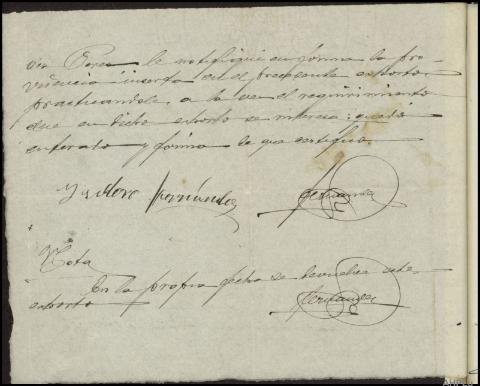 den Perez le notifiqué en forma la pro-
videncia inserta en el precedente exhorto,
practicandole, a la vez el requirimiento
que en dicho exhorto se interesa; quedó
enterado y firma de que certifico.
Isidoro Fernández
Nota
En la propia fecha se devuelve este
exhorto